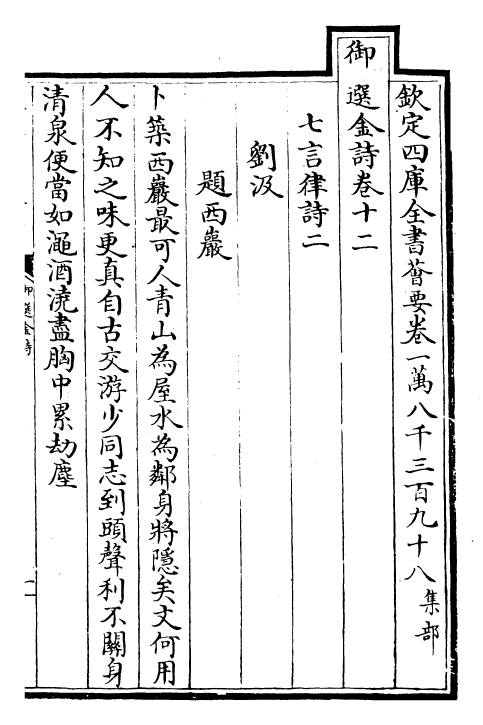 欽定四庫全書薈要卷一萬八千三百九十八集部
御選金詩卷十二
七言律詩二
劉汲
題西巖
卜築西巖最可人青山為屋水為鄰身將隱矣文何用
人不知之味更真自古交游少同志到頭聲利不關身
清泉便當如澠酒澆盡胸中累劫塵
御選金詩